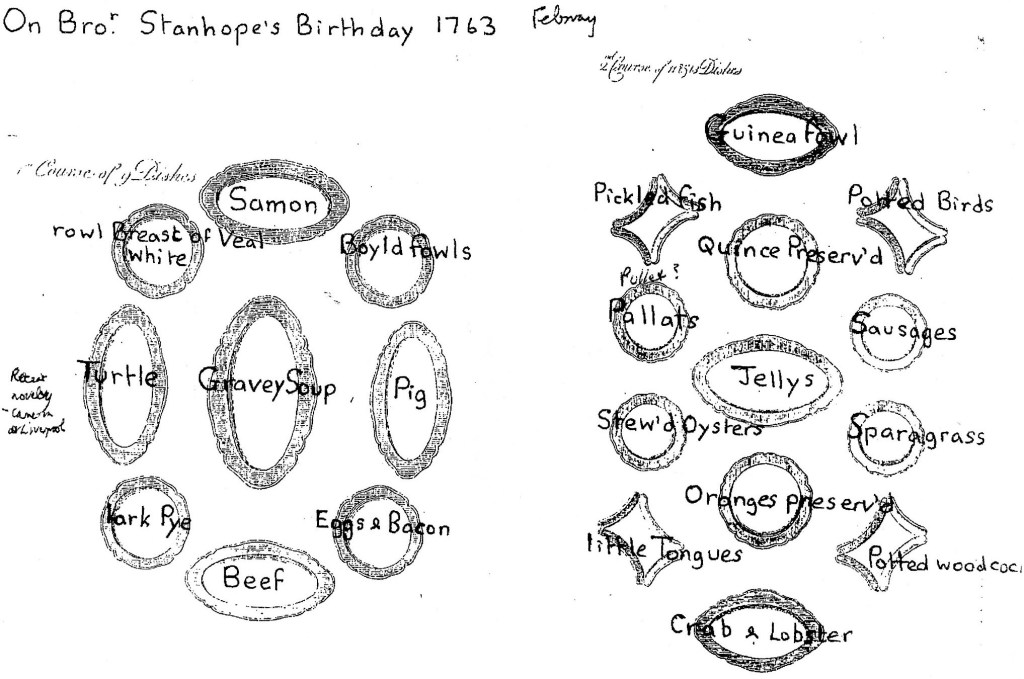 On Bror. Stanhope's Birthday 1763
February
Course of 9 Dishes
Samon
rowl Breast of Veal
white
Boyld fowls
Turtle
Gravey Soup
Pig
Recent
novelty
- Came in
at Liverpool
lark Pye
Eggs & Bacon
Beef
2nd Course of 11 & 13 Dishes
Guinea fowl
Pickled fish
Potted Birds
Quince Preserv'd
Pullet?
Pallats
Sausages
Jellys
Stew'd Oysters
Sparagrass
Oranges preserv'd
little Tongues
Potted woodcoc
Crab & Lobster